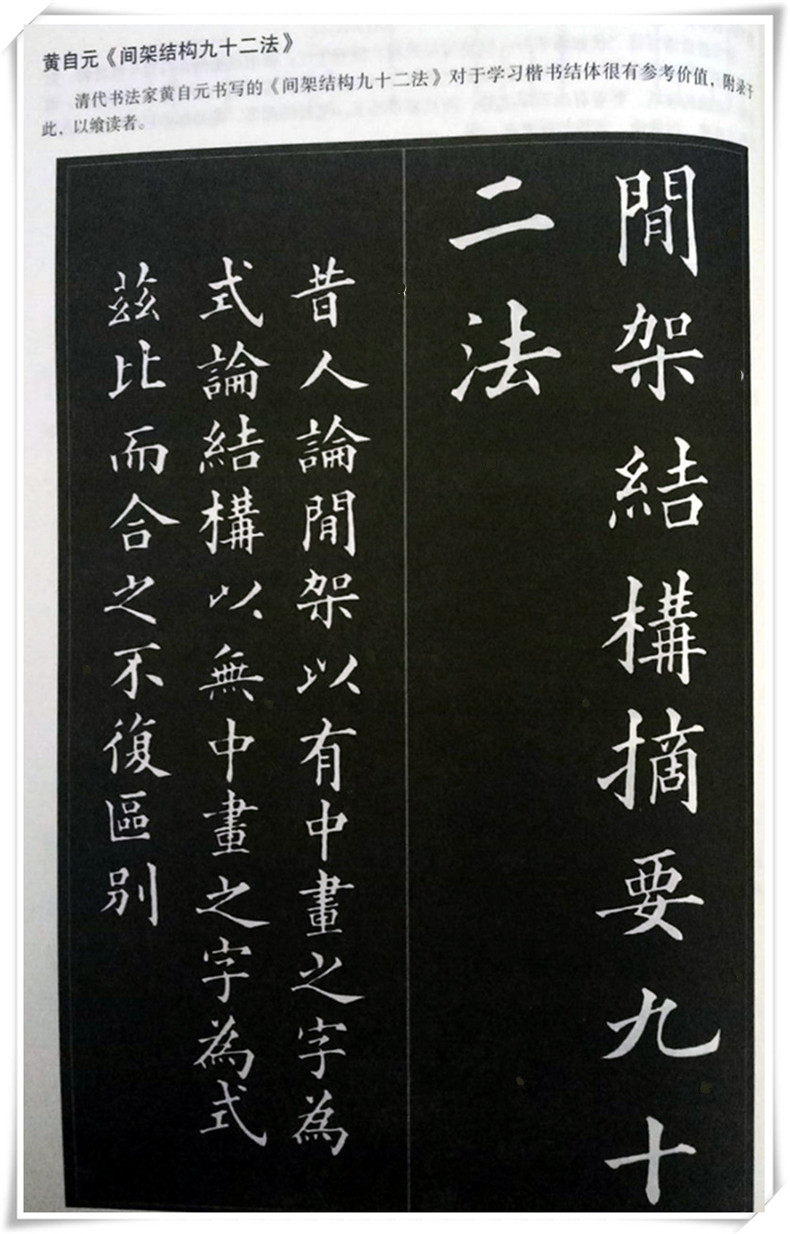 黄自元《间架结构九十二法》
清代书法家黄自元书写的《间架结构九十二法》对于学习楷书结体很有参考价值，附录于
此，以飨读者。
間架結構摘要九十
二法
昔人論間架以有中畫之字為
式論結構以無中畫之字為式
茲比而合之不復區别